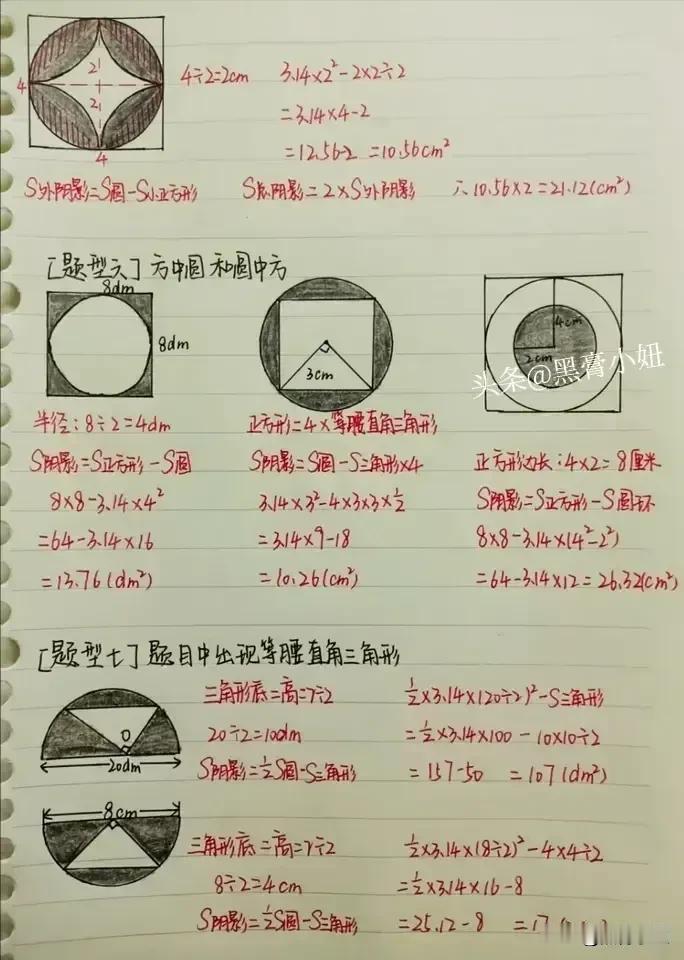 2
2
4
4
4÷2=2cm
3.14×2²-2×2÷2
=3.14×4-2
=12.56-2 =10.56cm²
S外阴影=S圆-S小正方形
S总阴影=2×S外阴影
∴10.56×2=21.12(cm²)
[题型六]方中圆和圆中方
8dm
8dm
3cm
4cm
2cm
头条@黑膏小妞
半径:8÷2=4dm
S阴影=S正方形-S圆
8×8-3.14×4²
=64-3.14×16
=13.76(dm²)
正方形=4×等腰直角三角形
S阴影=S圆-S三角形×4
3.14×3²-4×3×3×½
=3.14×9-18
=10.26(cm²)
正方形边长:4×2=8厘米
S阴影=S正方形-S圆环
8×8-3.14×(4²-2²)
=64-3.14×12=26.32(cm²)
[题型七]题目中出现等腰直角三角形
O
20dm
三角形底=高=r÷2
20÷2=10dm
S阴影=½S圆-S三角形
½×3.14×(20÷2)²-S三角形
=½×3.14×100-10×10÷2
=157-50 =107(dm²)
8cm
三角形底=高=r÷2
8÷2=4cm
S阴影=½S圆-S三角形
½×3.14×(8÷2)²-4×4÷2
=½×3.14×16-8
=25.12-8 =17